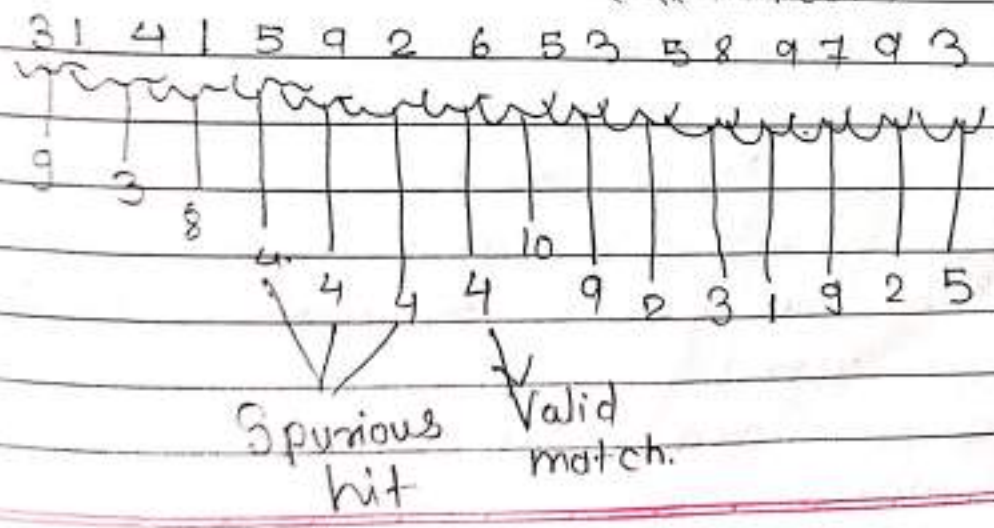 3 1 4 1 5 9 2 6 5 3 5 8 9 7 9 3
9 3 8 4 4 4 4 10 9 2 3 1 9 2 5
Spurious hit
Valid match.